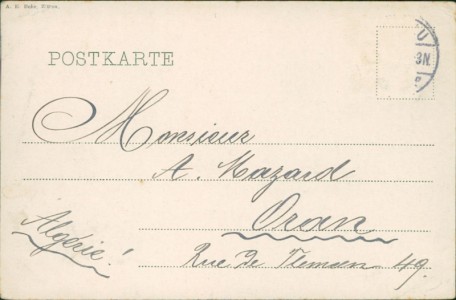 POSTKARTE
Monsieur
A. Mazard
Oran
Algérie!
Rue de Tlemcen 49.